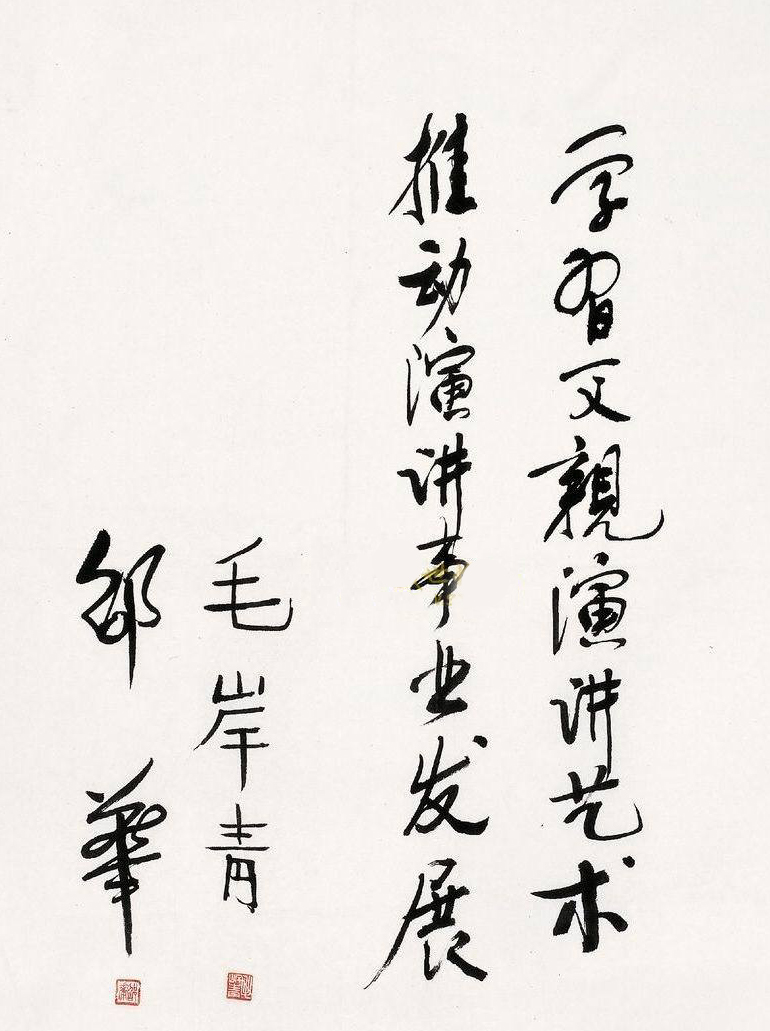 学習父親演讲艺术
推动演讲事业发展
毛岸青
邵華